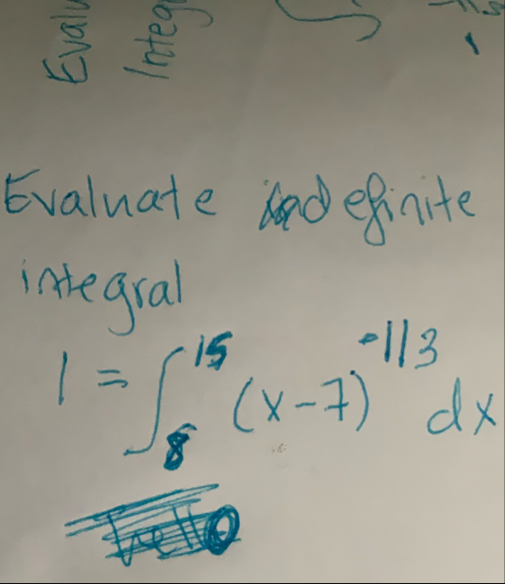 Evalu
Integ
Evaluate indefinite
integral
I = ∫_8^15 (x-7)^-1/3 dx
hello